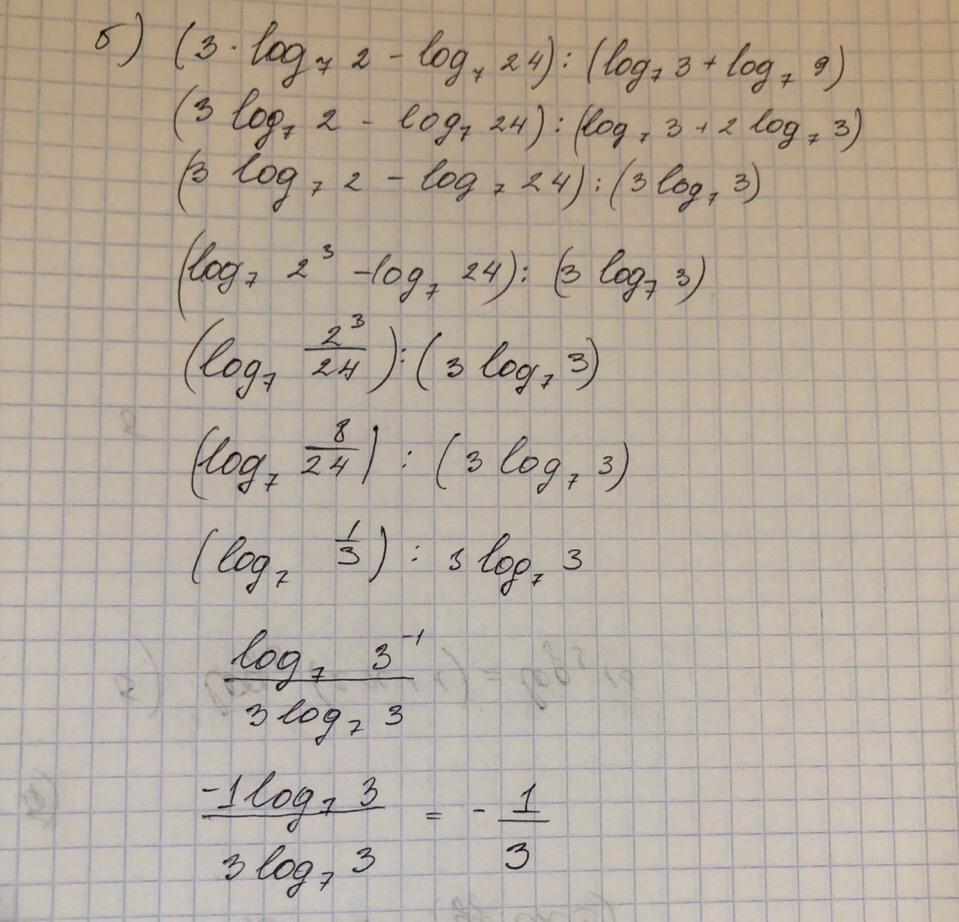 б) (3 · log₇ 2 - log₇ 24) : (log₇ 3 + log₇ 9)
(3 log₇ 2 - log₇ 24) : (log₇ 3 + 2 log₇ 3)
(3 log₇ 2 - log₇ 24) : (3 log₇ 3)
(log₇ 2³ - log₇ 24) : (3 log₇ 3)
(log₇ 2³/24) : (3 log₇ 3)
(log₇ 8/24) : (3 log₇ 3)
(log₇ 1/3) : 3 log₇ 3
log₇ 3⁻¹
3 log₇ 3
-1 log₇ 3 / 3 log₇ 3 = - 1/3